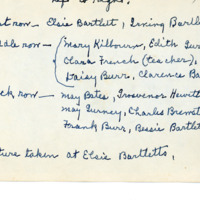 to right.
row — Elsie Bartlett, Irving Bartl
dle row — Mary Kilbourn, Edith Tur
Clara French (teacher),
Daisy Burr, Clarence Ba
ck row — May Bates, Grosvenor Hewitt
May Turney, Charles Brewst
Frank Burr, Bessie Bartlet
ture taken at Elsie Bartletts,